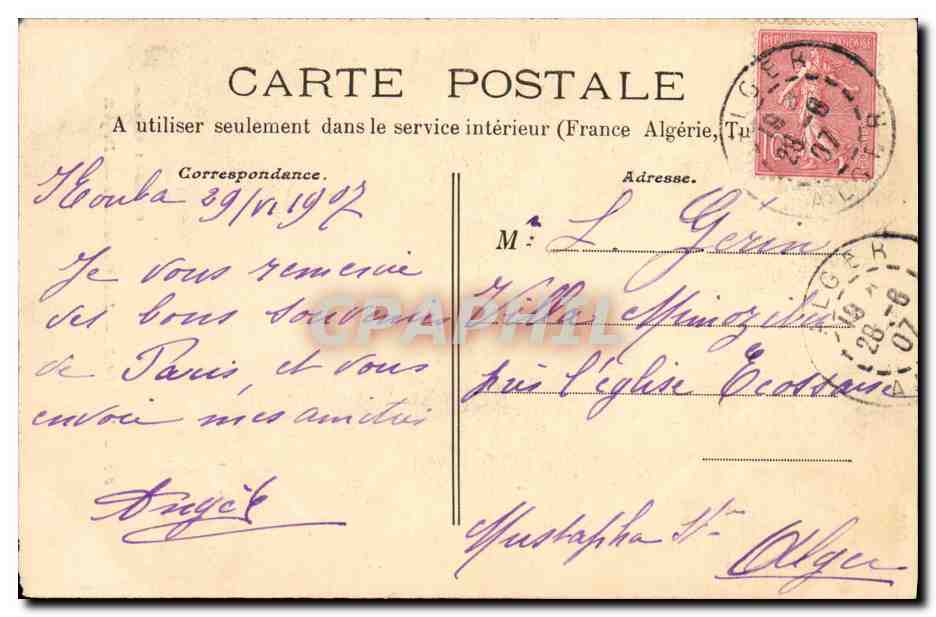 CARTE POSTALE
A utiliser seulement dans le service intérieur (France Algérie, Tu
Correspondance.
Kouba 29/VI 1907
Je vous remercie
des bons souvenirs
de Paris, et vous
envoie mes amitiés
Angèle
Adresse.
M: L. Gérin
Villa
près l'église Ecossaise
Mustapha Sr
Alger
RÉPUBLIQUE FRANÇAISE
10
ALGER
ALGER
19
28 -6
07
ALGER
19
28 -6
07
A
CPAPHIL